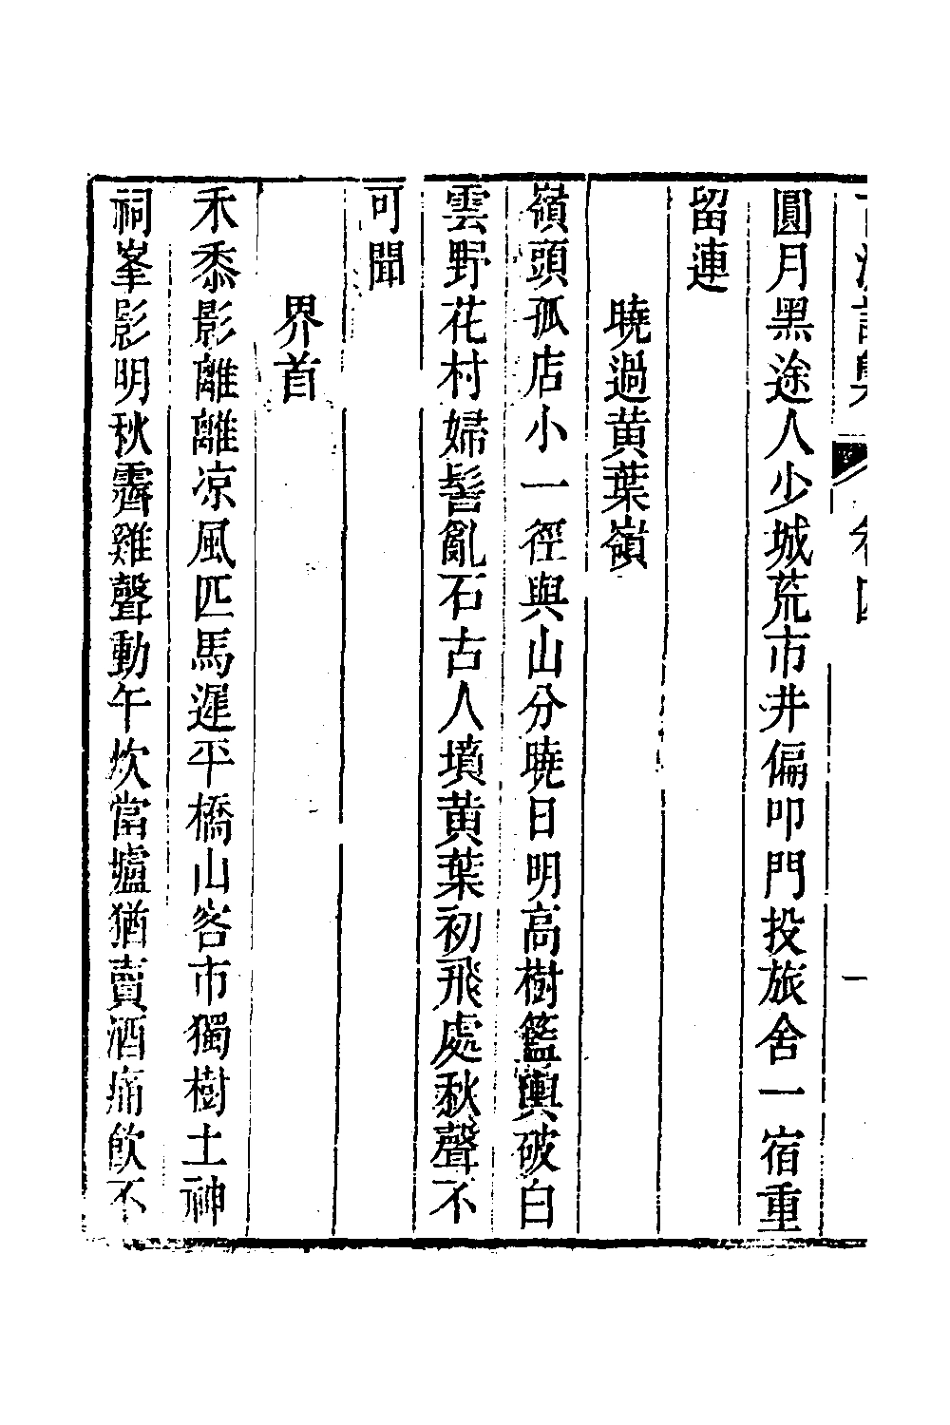 圓月黑途人少城荒市井偏叩門投旅舍一宿重
留連
曉過黃葉嶺
嶺頭孤店小一徑與山分曉日明高樹籃輿破白
雲野花村婦髻亂石古人墳黃葉初飛處秋聲不
可聞
界首
禾黍影離離凉風匹馬遲平橋山客市獨樹土神
祠峯影明秋霽雞聲動午炊當壚猶賣酒痛飲不